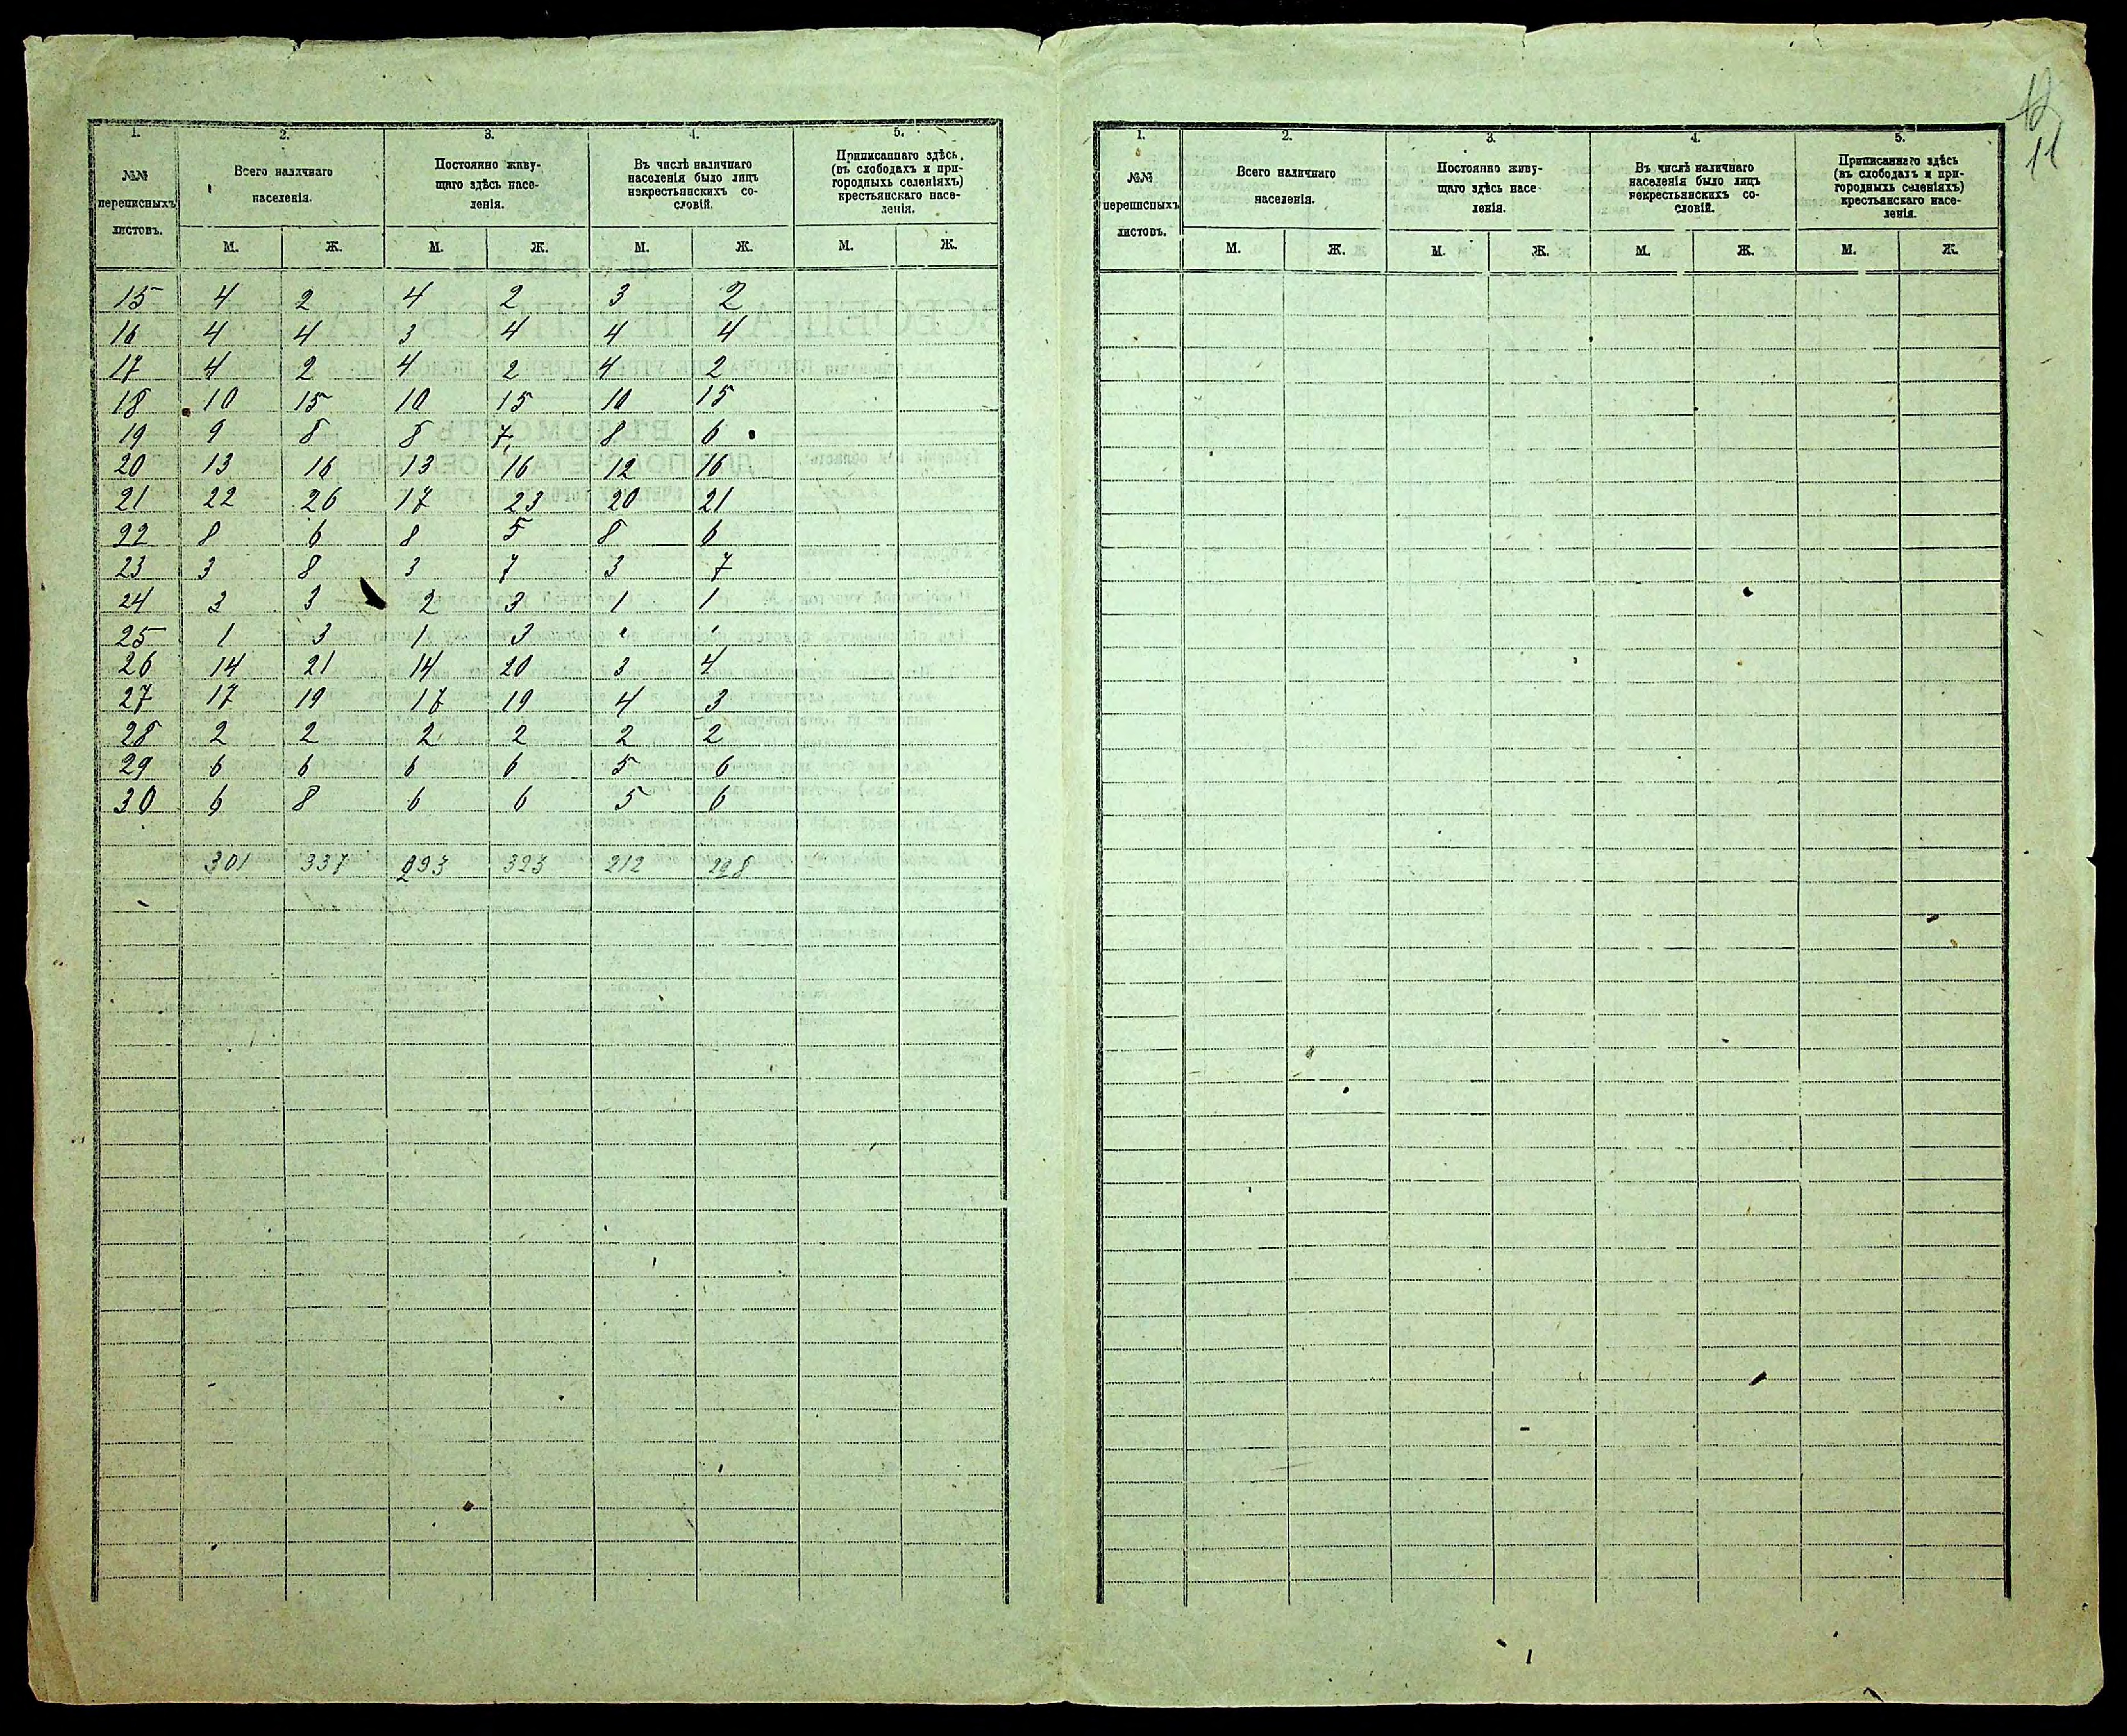 1. 2. 3. 4. 5.
№№ переписныхъ листовъ.
Всего наличнаго населенія.
Постоянно живу-
щаго здѣсь насе-
ленія.
Въ числѣ наличнаго
населенія было лицъ
некрестьянскихъ со-
словій.
Приписаннаго здѣсь
(въ слободахъ и при-
городныхъ селеніяхъ)
крестьянскаго насе-
ленія.
М. Ж. М. Ж. М. Ж. М. Ж.
15 4 2 4 2 3 2
16 4 4 3 4 4 4
17 4 2 4 2 4 2
18 10 15 10 15 10 15
19 9 8 8 7 8 6
20 13 16 13 16 12 16
21 22 26 17 23 20 21
22 8 6 8 5 8 6
23 3 8 3 7 3 7
24 3 3 2 3 1 1
25 1 3 1 3
26 14 21 14 20 3 4
27 17 19 17 19 4 3
28 2 2 2 2 2 2
29 6 6 6 6 5 6
30 6 8 6 6 5 6
301 337 293 323 212
11
1. 2. 3. 4. 5.
№№ переписныхъ листовъ.
Всего наличнаго населенія.
Постоянно живу-
щаго здѣсь насе-
ленія.
Въ числѣ наличнаго
населенія было лицъ
некрестьянскихъ со-
словій.
Приписаннаго здѣсь
(въ слободахъ и при-
городныхъ селеніяхъ)
крестьянскаго насе-
ленія.
М. Ж. М. Ж. М. Ж. М. Ж.